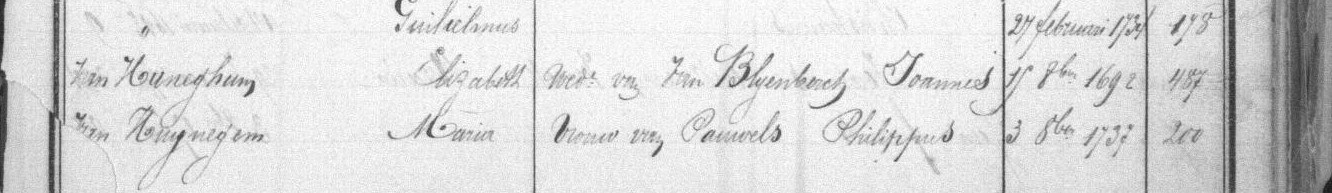 " Guilielmus 27 februari 1734 178
Van Huneghem Elizabeth Wede van Van Blyenberch Joannes 15 7ber 1692 487
Van Huynegem Maria Vrouw van Pauwels Philippus 3 8ber 1737 200